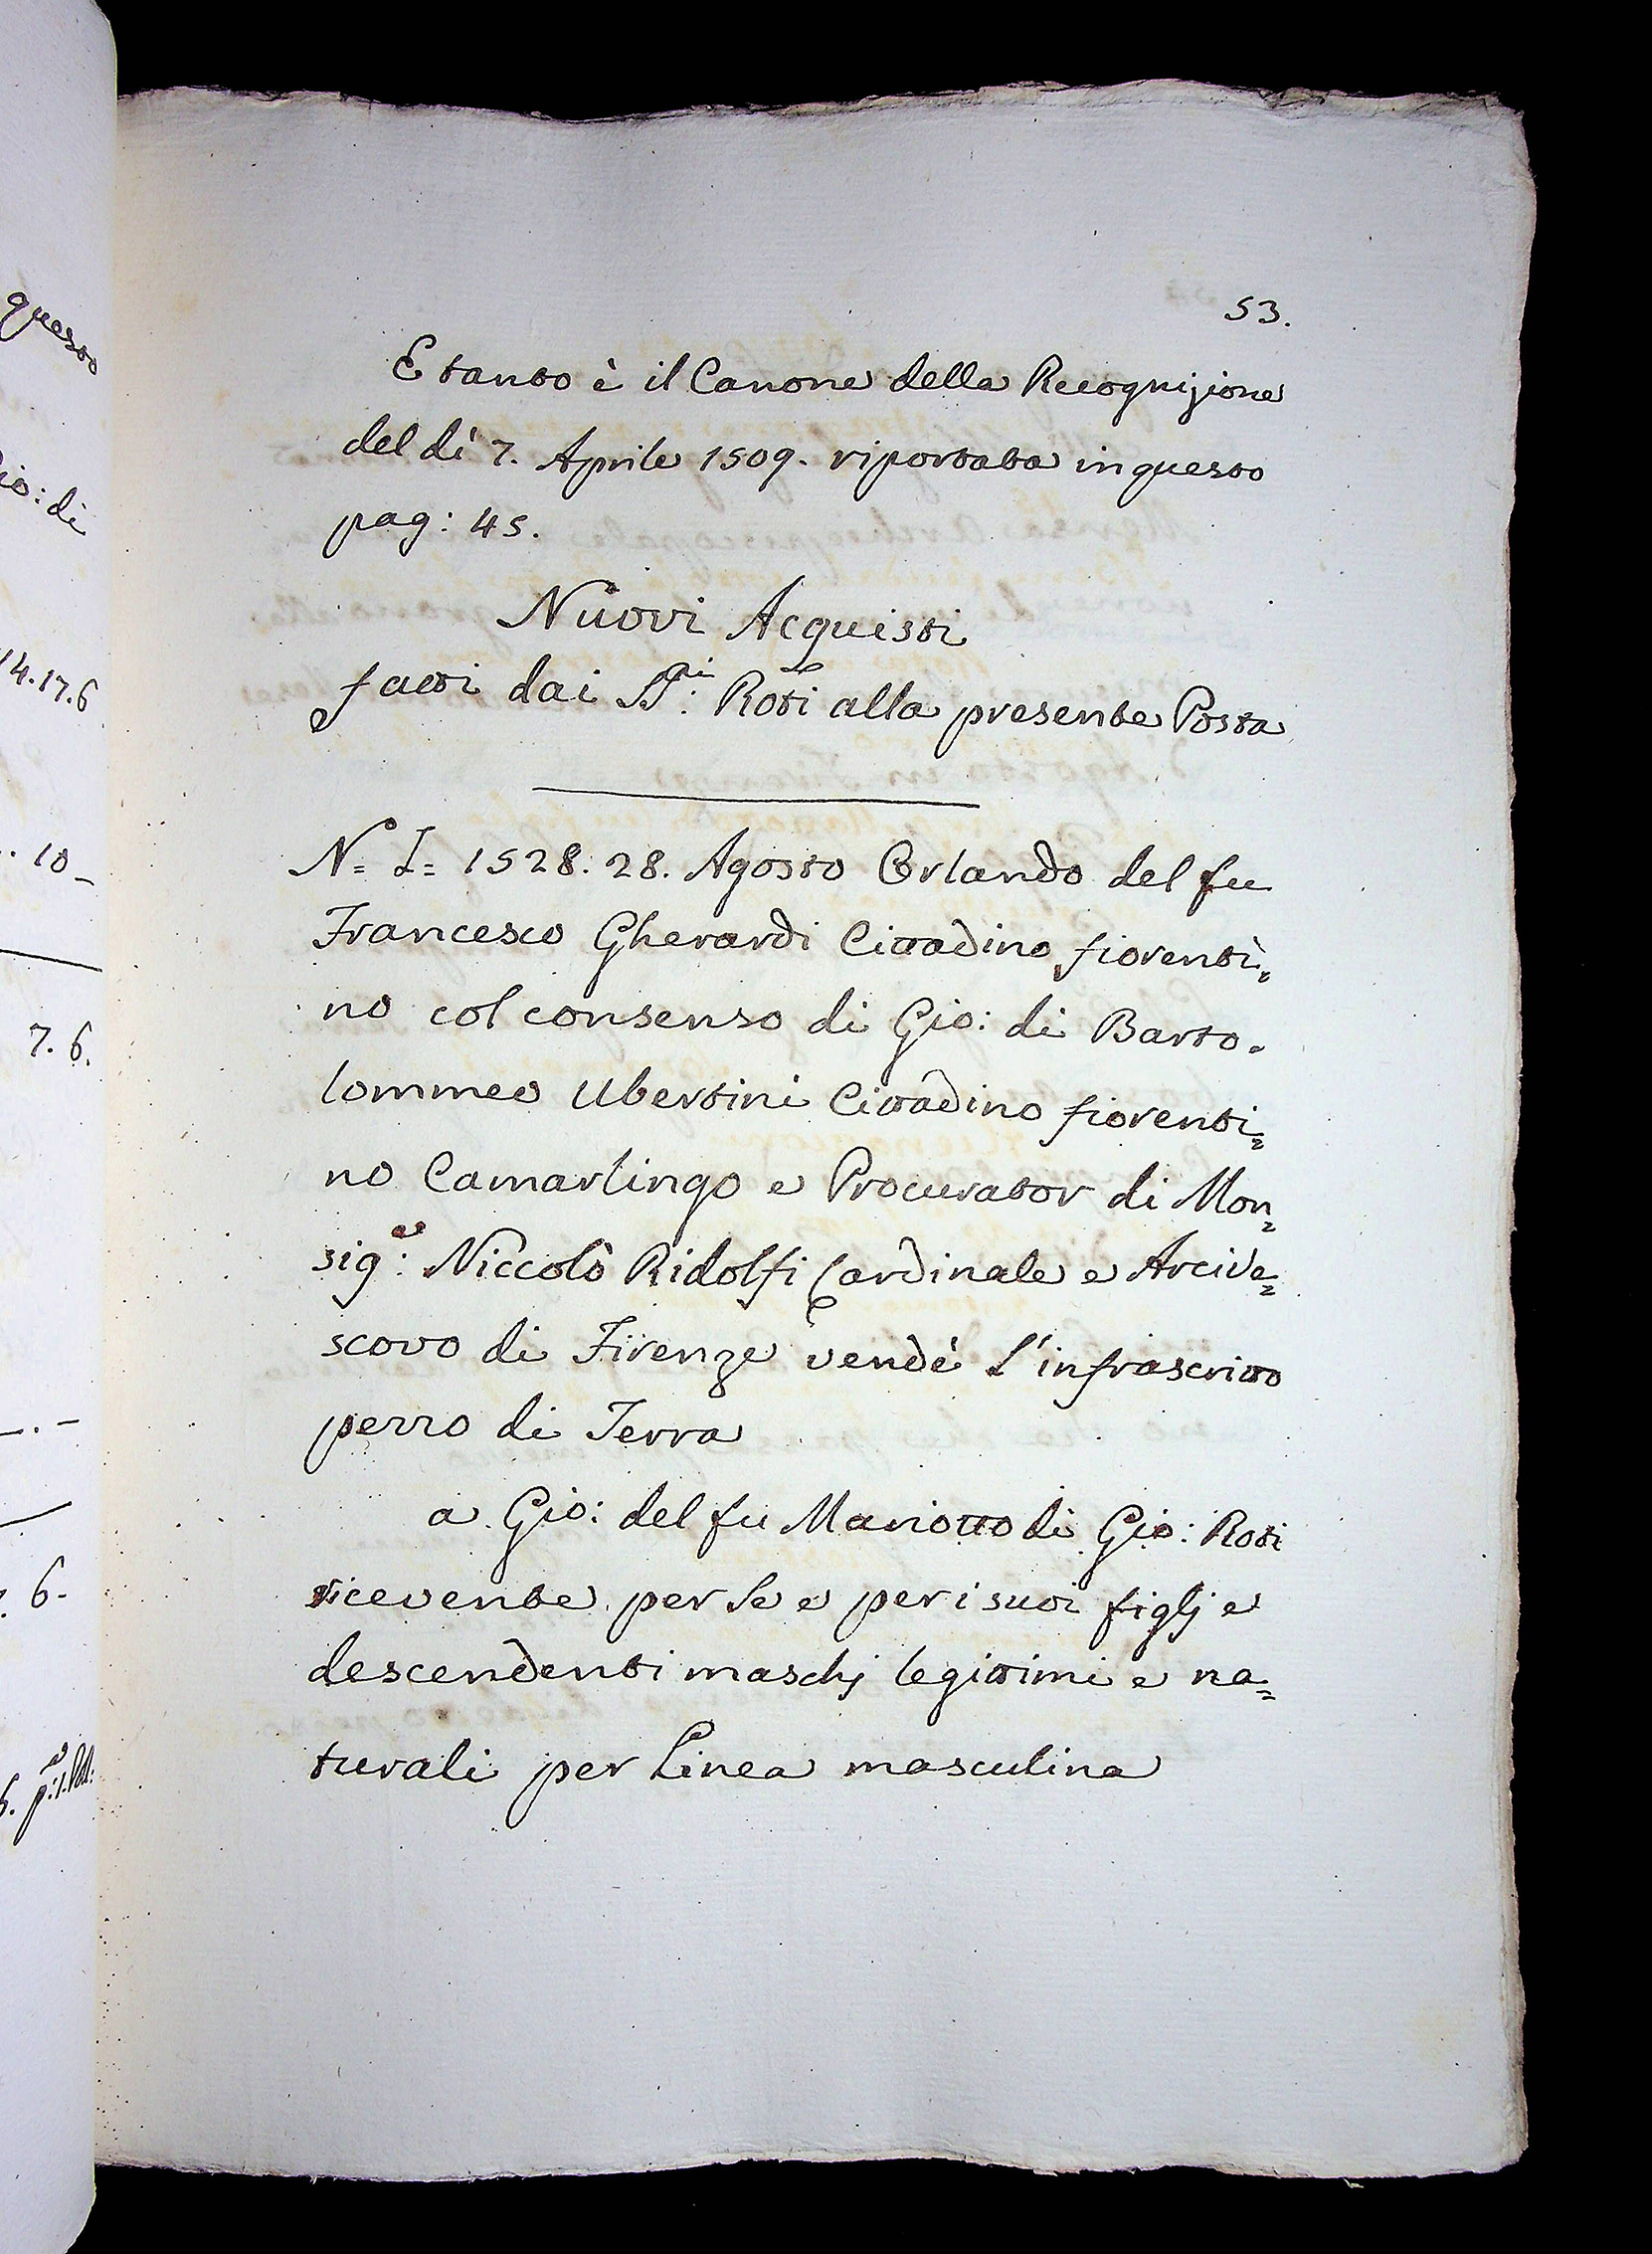 questo
io: di
14.17.6
. 10_
7. 6.
6-
53.
E tanto è il Canone della Recognizione
del dì 7. Aprile 1509. riportata in questo
pag: 45.
Nuovi Acquisti
fatti dai SS.ri Roti alla presente Posta
N= I= 1528. 28. Agosto Orlando del fu
Francesco Gherardi Cittadino fiorenti=
no col consenso di Gio: di Barto=
lommeo Ubertini Cittadino fiorenti=
no Camarlingo e Procurator di Mon=
sig.e: Niccolò Ridolfi Cardinale e Arcive=
scovo di Firenze vendè l'infrascritto
pezzo di Terra
a Gio: del fu Mariotto di Gio: Roti
ricevente per Se e per i suoi figlj e
descendenti maschj legittimi e na=
turali per Linea masculina